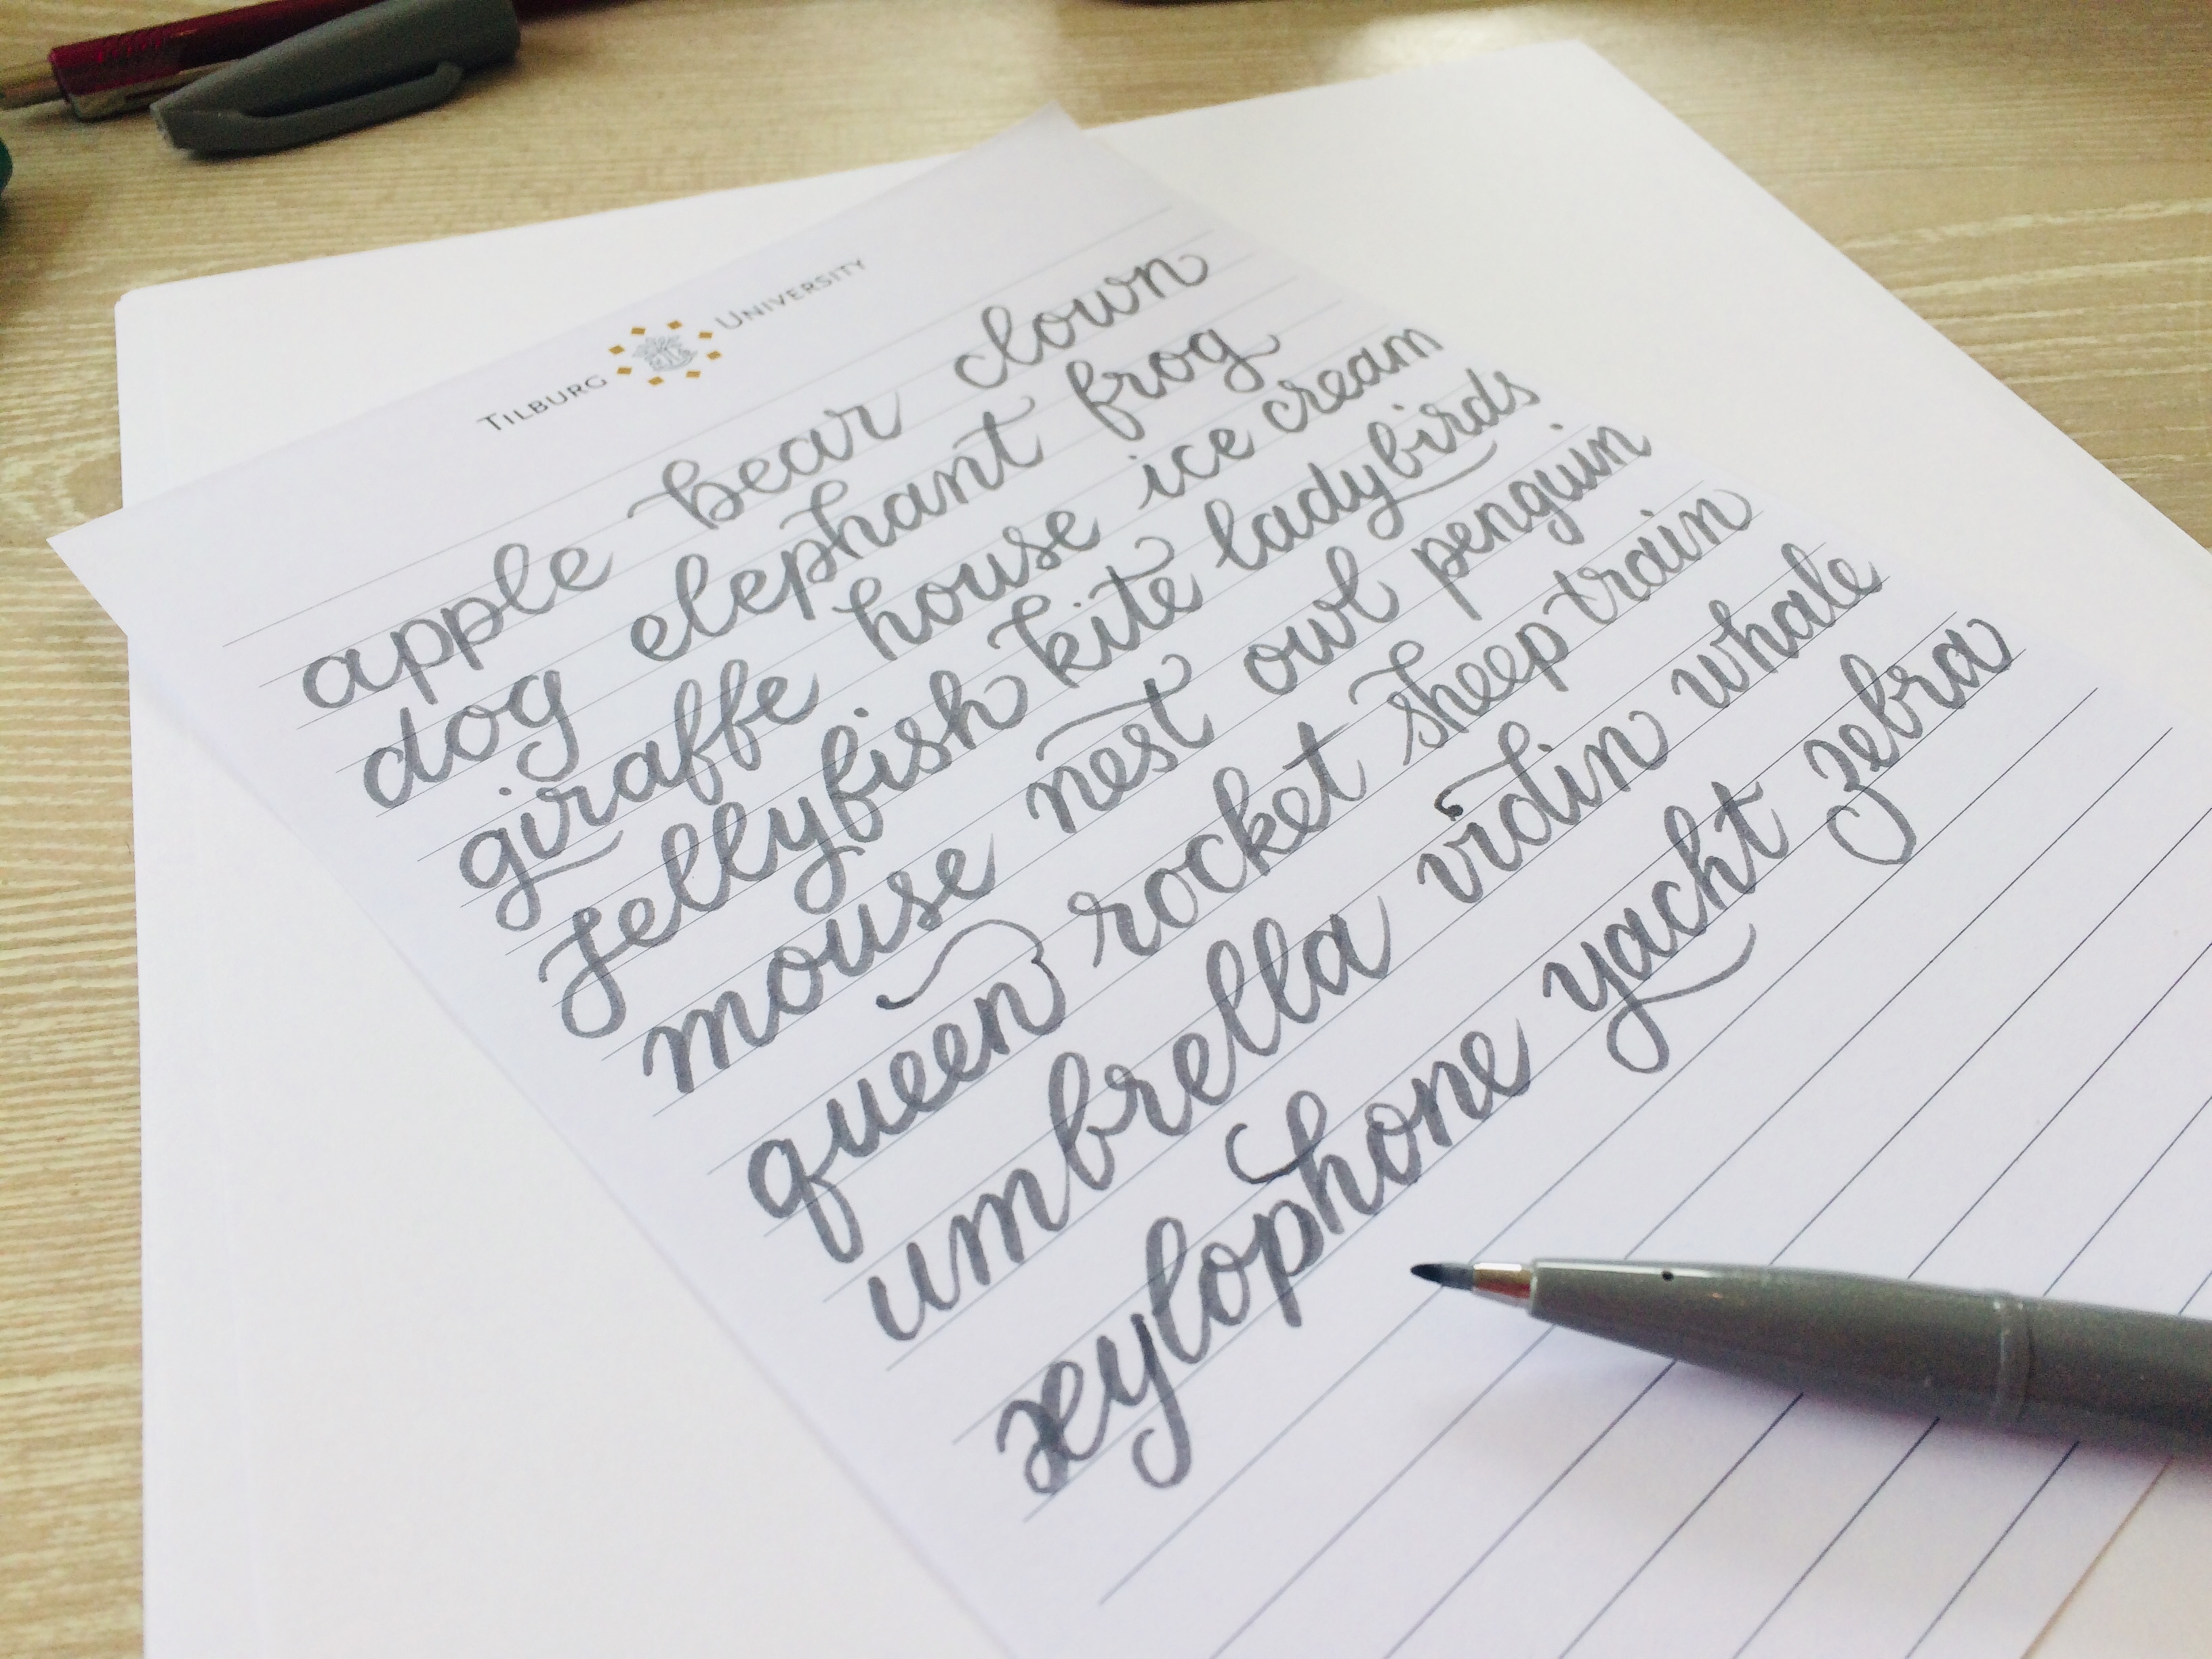 TILBURG UNIVERSITY
apple bear clown
dog elephant frog
giraffe house ice cream
jellyfish kite ladybirds
mouse nest owl penguin
queen rocket sheep train
umbrella violin whale
xylophone yacht zebra